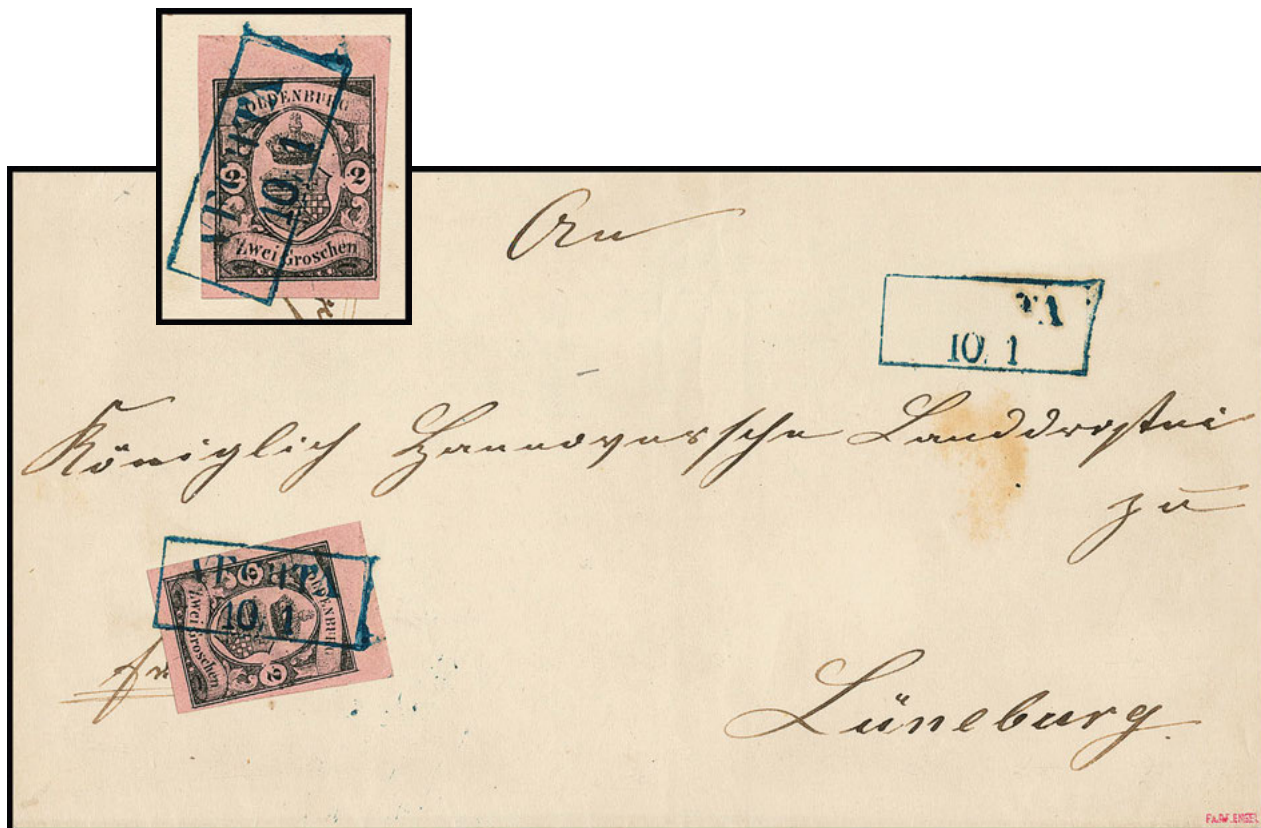 OLDENBURG
2 2
Zwei Groschen
10 1
An
TA
10. 1
Königlich Hannoversche Landdrostei
zu
VECHTA
10. 1
OLDENBURG
2 2
Zwei Groschen
Lüneburg.